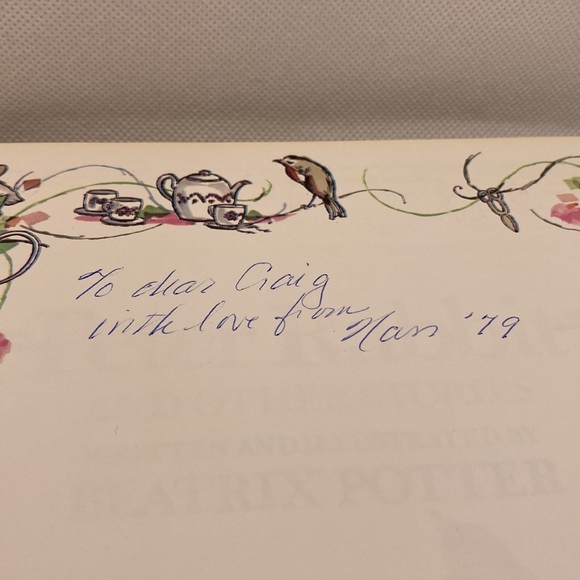 To dear Craig
with love from
Nan '79
AND OTHER STORIES
WRITTEN AND ILLUSTRATED BY
BEATRIX POTTER